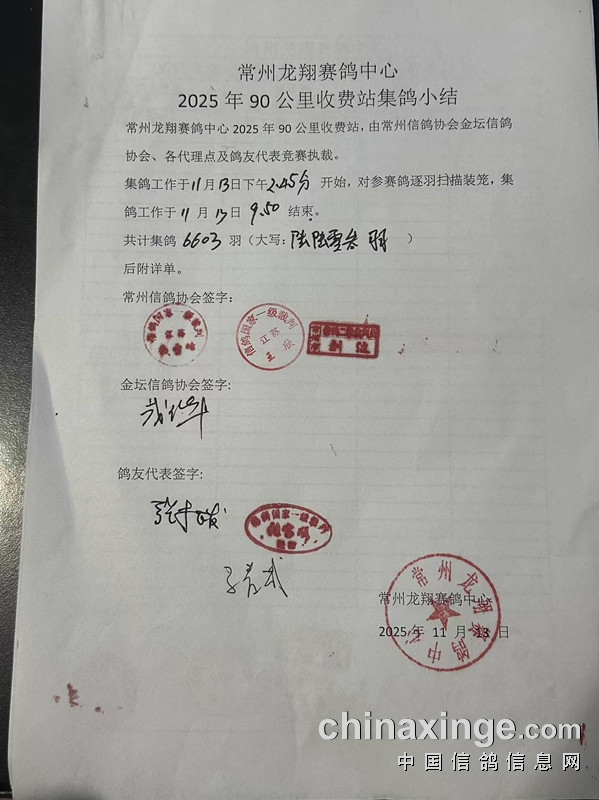 常州龙翔赛鸽中心
2025 年 90 公里收费站集鸽小结
常州龙翔赛鸽中心 2025 年 90 公里收费站，由常州信鸽协会金坛信鸽
协会、各代理点及鸽友代表竞赛执裁。
集鸽工作于 11 月 13 日下午 2.45分 开始，对参赛鸽逐羽扫描装笼，集
鸽工作于 11 月 13 日 9.50 结束。
共计集鸽 6603 羽（大写：陆陆零叁 羽 ）
后附详单。
常州信鸽协会签字：
信鸽国家一级裁判
江苏
王
金坛信鸽协会签字：
鸽友代表签字：
信鸽国家一级裁判
常州龙翔赛鸽中心
2025 年 11 月 13 日
常州龙翔赛鸽中心
chinaxinge.com
中国信鸽信息网